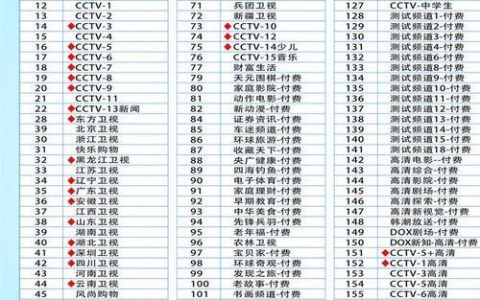 12 CCTV-1 71 兵团卫视 127 CCTV-中学生
13 CCTV-2 72 新疆卫视 128 测试频道1-付费
14 CCTV-3 73 CCTV-10 129 测试频道2-付费
15 CCTV-4 74 CCTV-12 130 测试频道3-付费
16 CCTV-5 75 CCTV-14少儿 131 测试频道4-付费
17 CCTV-6 76 CCTV-15音乐 132 测试频道7-付费
18 CCTV-7 77 财富生活 133 测试频道8-付费
19 CCTV-8 79 天元围棋-付费 134 测试频道9-付费
20 CCTV-9 80 家庭影院-付费 135 测试频道10-付费
21 CCTV-11 81 动作电影-付费 136 测试频道11-付费
22 CCTV-13新闻 82 新动漫-付费 137 测试频道13-付费
28 东方卫视 84 证券资讯-付费 138 测试频道14-付费
39 北京卫视 85 车迷频道-付费 139 测试频道15-付费
30 浙江卫视 86 环球旅游-付费 140 测试频道16-付费
31 快乐购物 87 收藏天下-付费 141 测试频道18-付费
32 黑龙江卫视 88 央广健康-付费 142 高清电影--付费
33 江苏卫视 89 四海钓鱼-付费 143 高清综合-付费
34 辽宁卫视 90 电子体育-付费 144 高清影院-付费
35 广东卫视 91 家庭理财-付费 145 高清剧场-付费
36 安徽卫视 92 早期教育-付费 146 高清探索-付费
37 江西卫视 93 中华美食-付费 147 高清新视觉-付费
38 山东卫视 94 先锋兵羽-付费 148 韩潮放送-付费
39 湖南卫视 95 老年福-付费 149 DOX剧场-付费
40 湖北卫视 96 农林卫视 150 DOX新知-高清-付费
41 深圳卫视 97 宝贝家-付费 151 CCTV-5+高清
42 四川卫视 98 环球奇观-付费 152 CCTV-1高清
43 河南卫视 99 发现之旅-付费 153 CCTV-3高清
44 云南卫视 100 老故事-付费 154 CCTV-5高清
45 风尚购物 101 书画频道-付费 155 CCTV-6高清